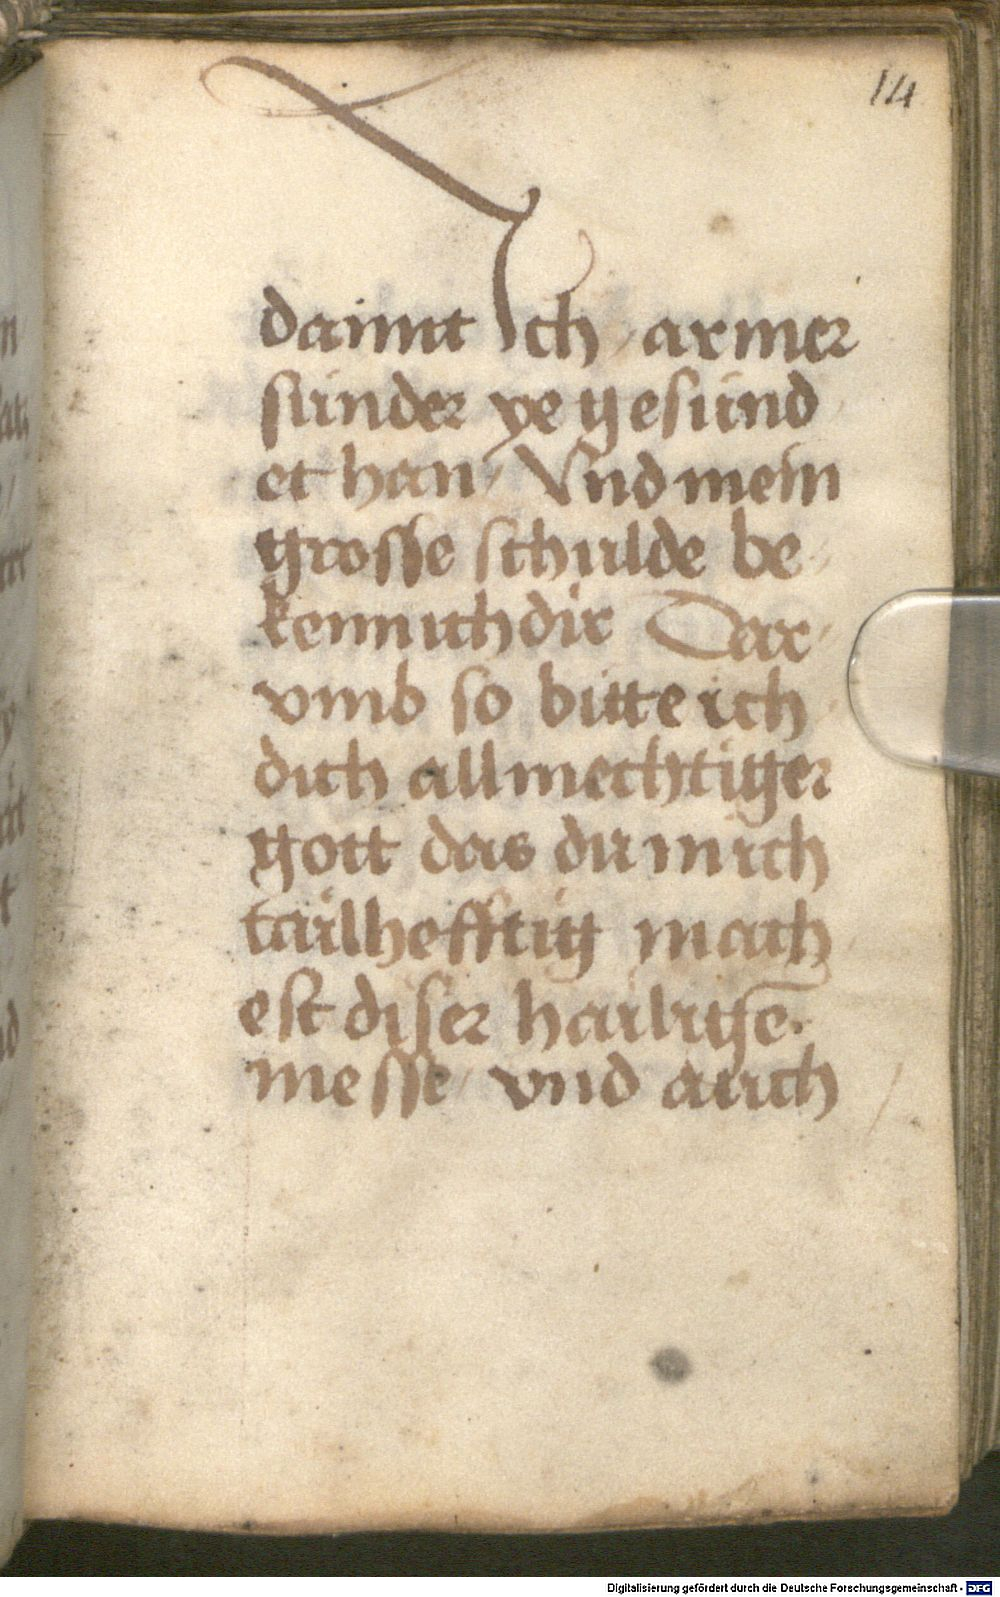 14
damit Ich armer
sünder ye gesünd
et han / Vnd mein
grosse schulde be
kenn ich dir Dar
vmb so bitte ich
dich allmechtiger
gott das du mich
tailhefftig mach
est diser hailigē
messe / vnd auch
Digitalisierung gefördert durch die Deutsche Forschungsgemeinschaft - DFG